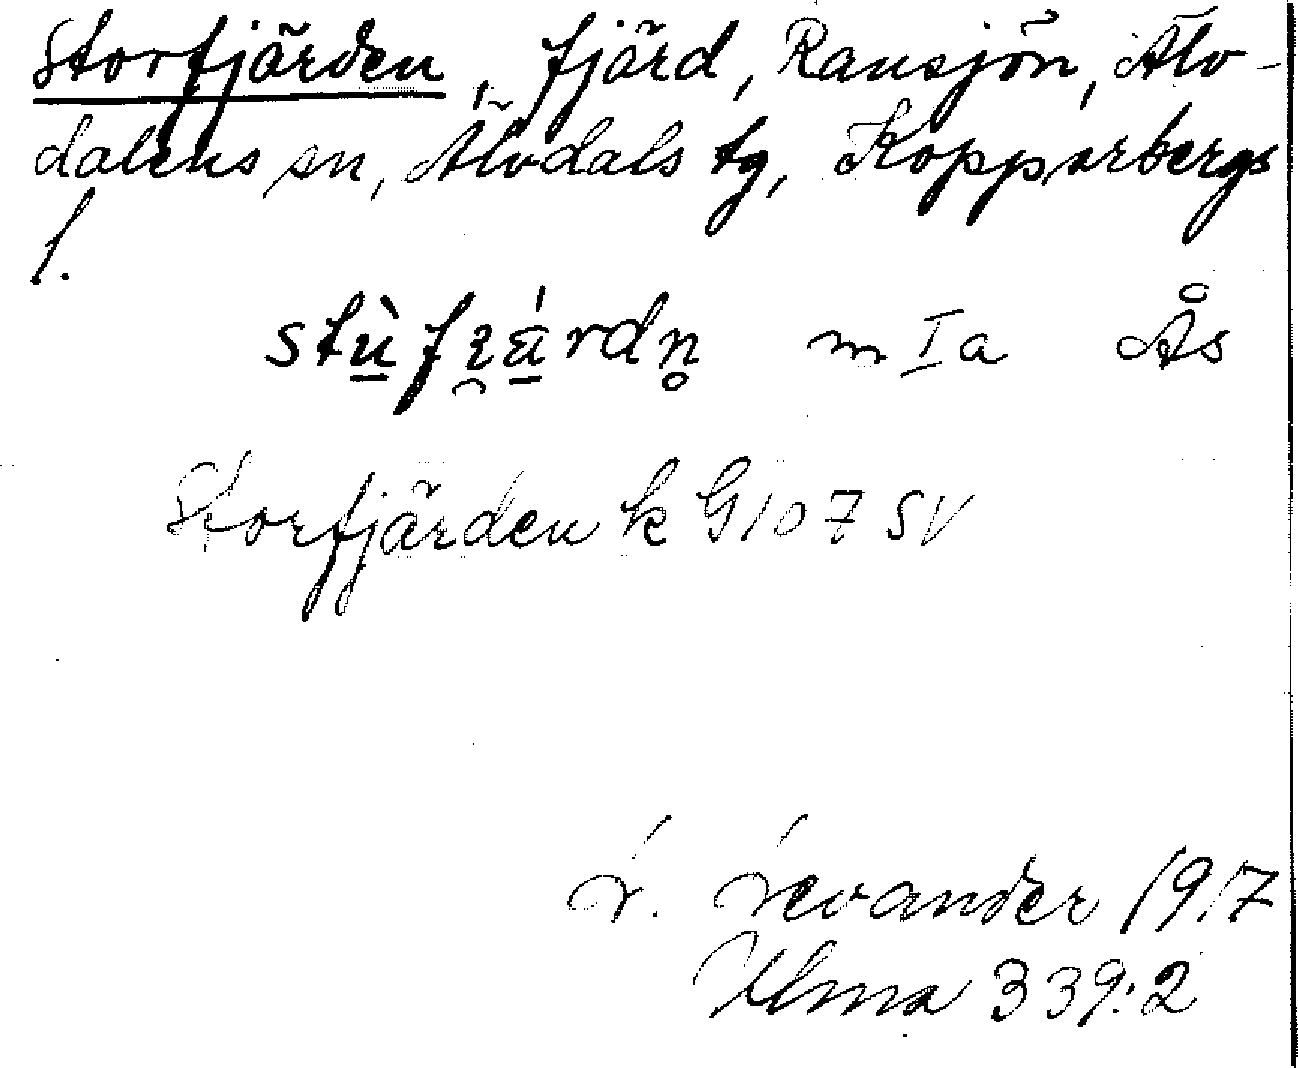 Storfjärden, fjärd, Ransjön, Älv-
dalens sn, Älvdals tg, Kopparbergs
l.
m Ia Ås
Storfjärden k G107 SV
L. Levander 1917
Ulma 339:2